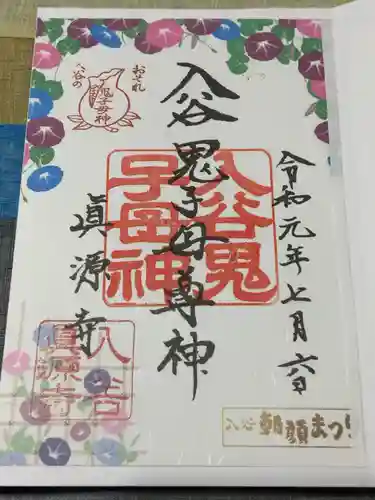 おそれ
入谷の
鬼子母神
令和元年七月六日
入谷鬼子母尊神
眞源寺
入谷鬼
子母神
入谷
眞源寺
入谷 朝顔まつり